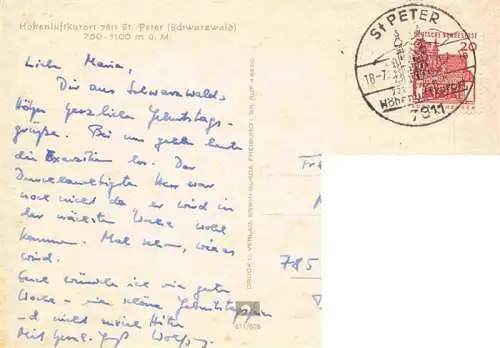 Höhenluftkurort 7811 St. Peter (Schwarzwald)
750-1100 m ü. M
Liebe Maria,
Dir aus Schwarzwalds
Höhen herzliche Geburtstags-
grüße. Bei uns gehen heute
die Exerzitien los. Der
Durchlauchtigste Herr war
noch nicht da er wird in
der nächsten Woche wohl
kommen. Mal sehen, wie es
wird.
Euch wünsche ich eine gute
Woche - eine schöne Geburtstags
und nicht zuviel Hitze
Mit herzl. Gruß Wolfg.
DRUCK U. VERLAG ERWIN BURDA, FREIBURG I. BR. RUF
811/608
ST PETER
18-7
Höhenluftkurort
7811
DEUTSCHE BUNDESPOST
20
785